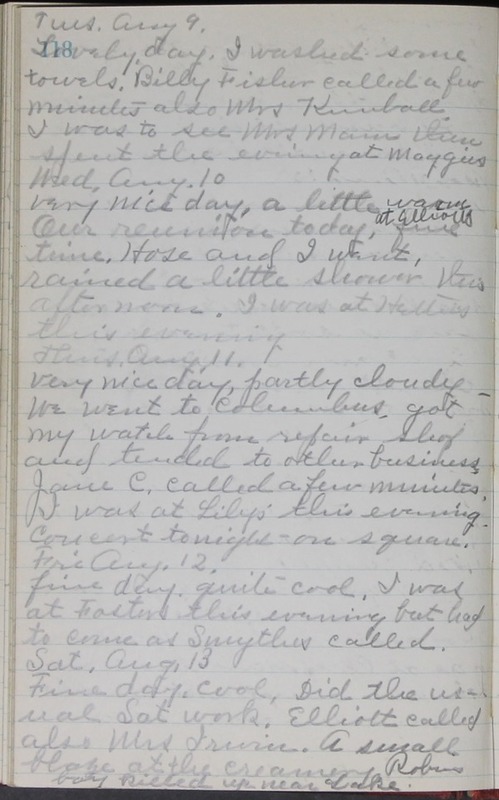 Tues. Aug 9.
118
Lovely day. I washed some
towels. Billy Fisher called a few
minutes also Mrs Kimball.
I was to see Mrs Mann then
spent the evening at Maggies
Wed, Aug. 10
very nice day, a little warm
Our reunion today, at Elliotts fine
time. Hose and I went,
rained a little shower this
afternoon. I was at Hatties
this evening
Thurs. Aug. 11.
very nice day, partly cloudy -
We went to Columbus, got
my watch from repair shop
and tended to other business
Jane C. called a few minutes.
I was at Lilys this evening.
Concert tonight - on square.
Fri. Aug. 12.
fine day, quite cool, I was
at Fosters this evening but had
to come as Smythes called.
Sat, Aug, 13
Fine day, cool, Did the us-
ual Sat work. Elliott called
also Mrs Irwin. A small
blaze at the creamery Robins
boy killed up near Lake.